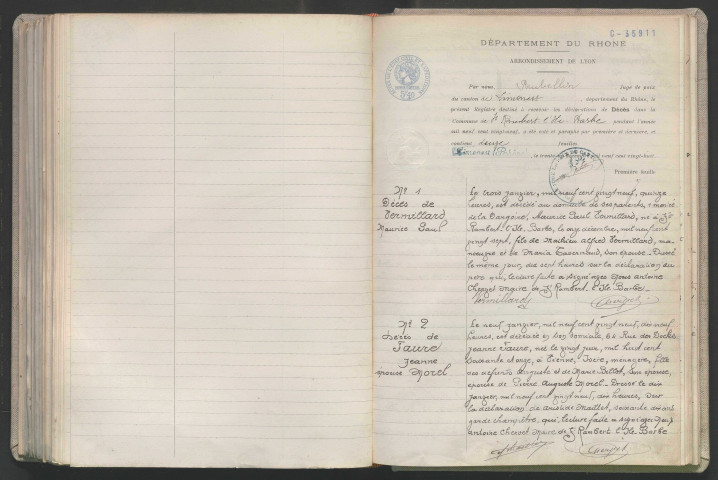 C-55911
DÉPARTEMENT DU RHÔNE
ARRONDISSEMENT DE LYON
Par nous, Juge de paix
du canton de Limonest, département du Rhône, le
présent Registre destiné à contenir les déclarations de Décès dans la
Commune de St Rambert l'Ile Barbe pendant l'année
mil neuf cent vingt neuf, a été coté et paraphé par première et dernière, et
contient douze feuilles
Limonest le trente neuf cent vingt-huit.
Première feuille
No 1
Décès de
Vermillard
Maurice Paul
Le trois janvier, mil neuf cent vingt neuf, quinze
heures, est décédé au domicile de ses parents, montée
de la Maurice Paul Vermillard, né à St
Rambert l'Ile Barbe, le onze décembre, mil neuf cent
vingt sept, fils de Mathieu Alfred Vermillard, ma-
et de Maria son épouse. Dressé
le même jour, dix sept heures sur la déclaration du
père qui, lecture faite a signé avec Nous Antoine
Maire de St Rambert l'Ile Barbe.
Vermillard
No 2
Décès de
Faure
Jeanne
épouse Morel
Le neuf janvier, mil neuf cent vingt neuf,
heures, est décédée en son domicile, 62 Rue des Docks
Jeanne Faure, née le vingt juin, mil huit cent
soixante et onze, à Vienne, Isère, ménagère, fille
des défunts Auguste et de Marie Billet, son épouse,
épouse de Pierre Auguste Morel. Dressé le dix
janvier, mil neuf cent vingt neuf, dix heures, sur
la déclaration de Maillet, soixante dix ans
garde champêtre, qui, lecture faite a signé avec Nous
Antoine Maire de St Rambert l'Ile Barbe